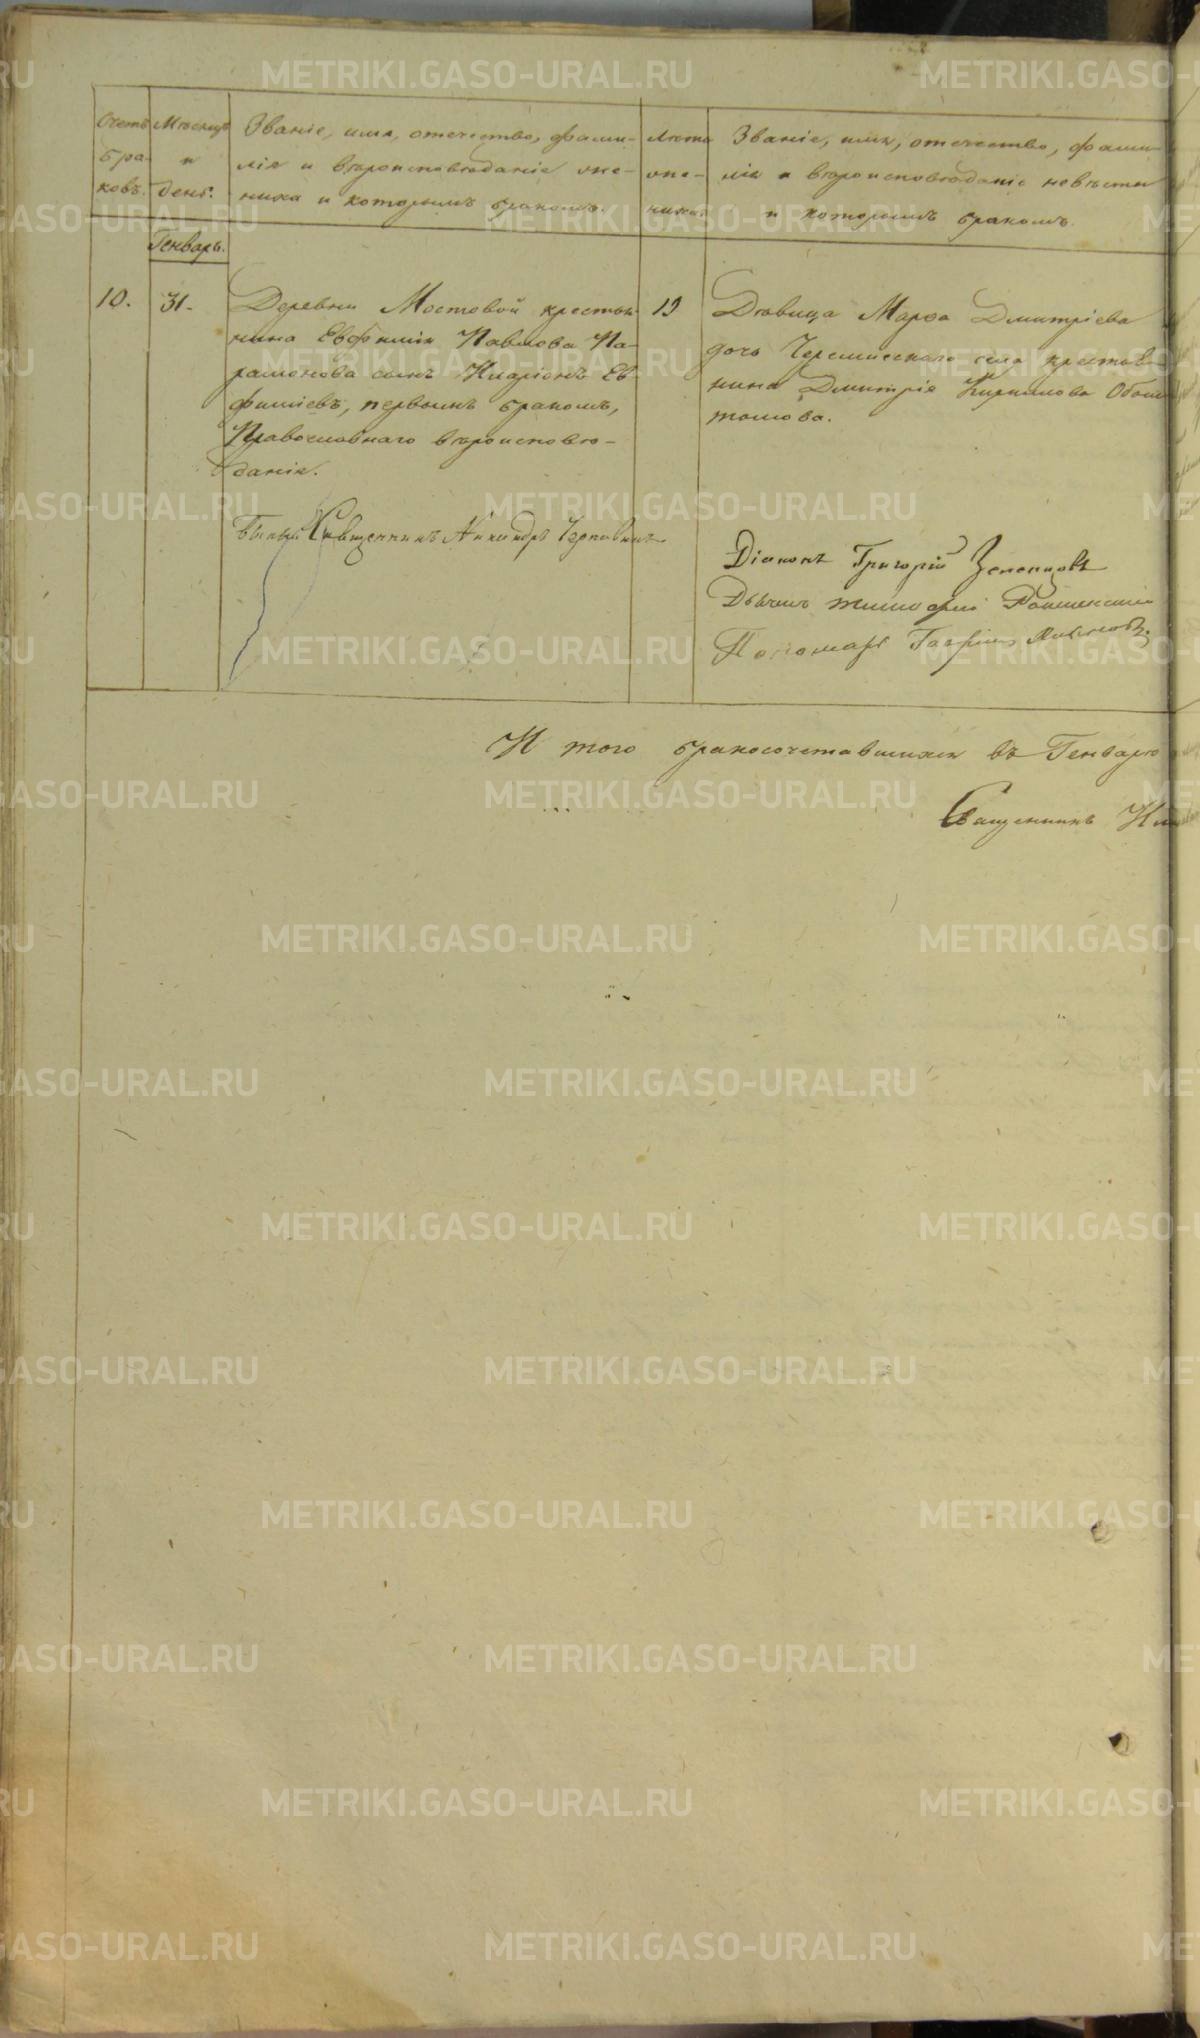 Счетъ бра- ковъ.
Мѣсяцъ и день.
Званіе, имя, отечество, фами-
лія и вѣроисповѣданіе же-
ниха и которымъ бракомъ.
Лѣта же- ниха.
Званіе, имя, отечество, фами-
лія и вѣроисповѣданіе невѣсты
и которымъ бракомъ.
Генварь.
10.
31.
Деревни Мостовой крестья-
нина Евфимія Павлова Па-
рамонова сынъ Иларіонъ Ев-
фиміевъ, первымъ бракомъ,
Православнаго вѣроисповѣ-
данія.
19
Дѣвица Марѳа Дмитріева
дочь Черемисскаго села крестья-
нина Дмитрія Кирилова
това.
Священникъ Никандръ
Діаконъ Григорій Зеленцовъ
Дьячекъ
Пономарь Гавріилъ
И того бракосочетавшихся въ Генварѣ
Священникъ Ни
METRIKI.GASO-URAL.RU